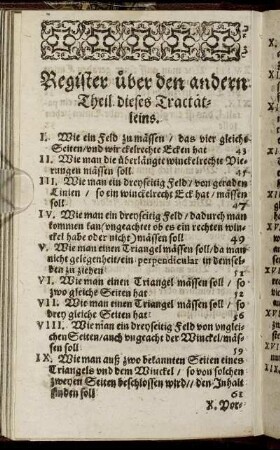 Register über den andern
Theil dieses Tractät-
leins.
I. Wie ein Feld zu mässen / das vier gleiche
Seiten/vnd winckelrechte Ecken hat 43
II. Wie man die überlängte winckelrechte Vie-
rungen mässen soll 45
III. Wie man ein dreyseitig Feld/von geraden
Linien / so ein winckelrecht Eck hat / mässen
soll 47
IV. Wie man ein dreyseitig Feld/dadurch man
kommen kan/vngeachtet ob es ein rechten win-
ckel habe oder nicht) mässen soll 49
V. Wie man einen Triangel mässen soll/da man
nicht gelegenheit/ein perpendicular in demsel-
den zu ziehen 51
VI. Wie man einen Triangel mässen soll / so
zwo gleiche Seiten hat 52
VII. Wie man einen Triangel mässen soll / so
drey gleiche Seiten hat: 56
VIII. Wie man ein dreyseitig Feld von vnglei-
chen Seiten/auch vngeacht der Winckel/mäs-
sen soll 59
IX. Wie man auß zwo bekannten Seiten eines
Triangels vnd dem Winckel / so von solchen
zweyen Seiten beschlossen wird// den Inhalt
finden soll 61
X. Vor-